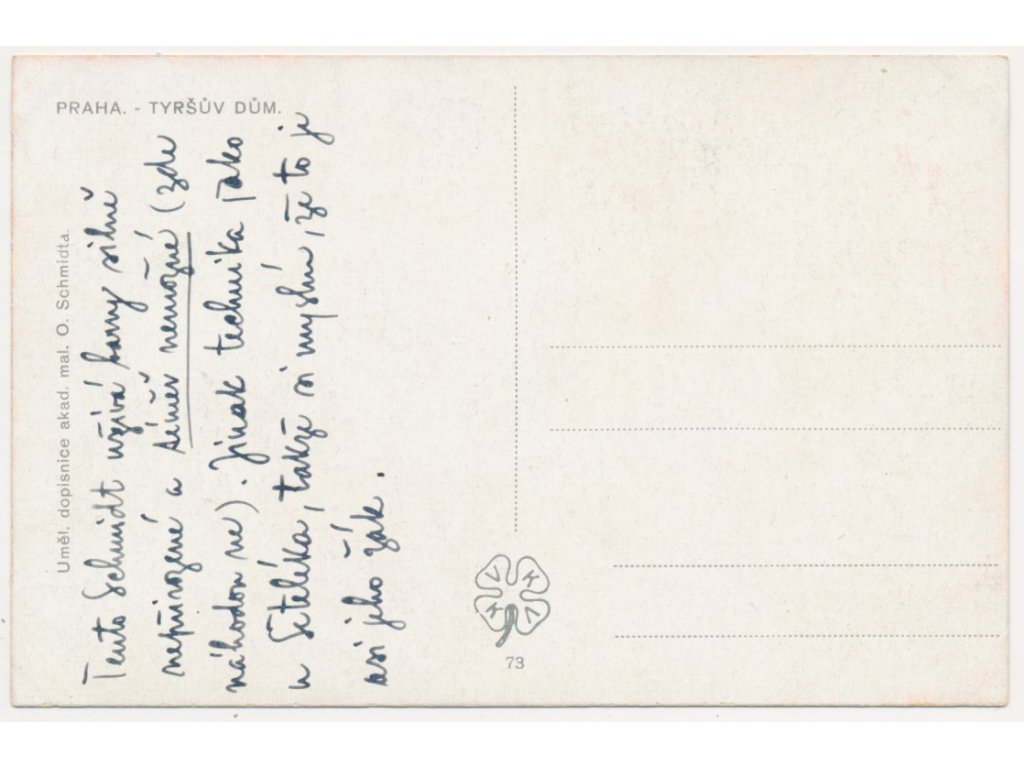 PRAHA. - TYRŠŮV DŮM.
Uměl. dopisnice akad. mal. O. Schmidta.
Tento Schmidt užívá barvy silně
nepřirozené a téměř nemožné (zde
náhodou ne). Jinak technika jako
u Šeteléka, takže si myslím, že to je
asi jeho žák.
V K K V
73